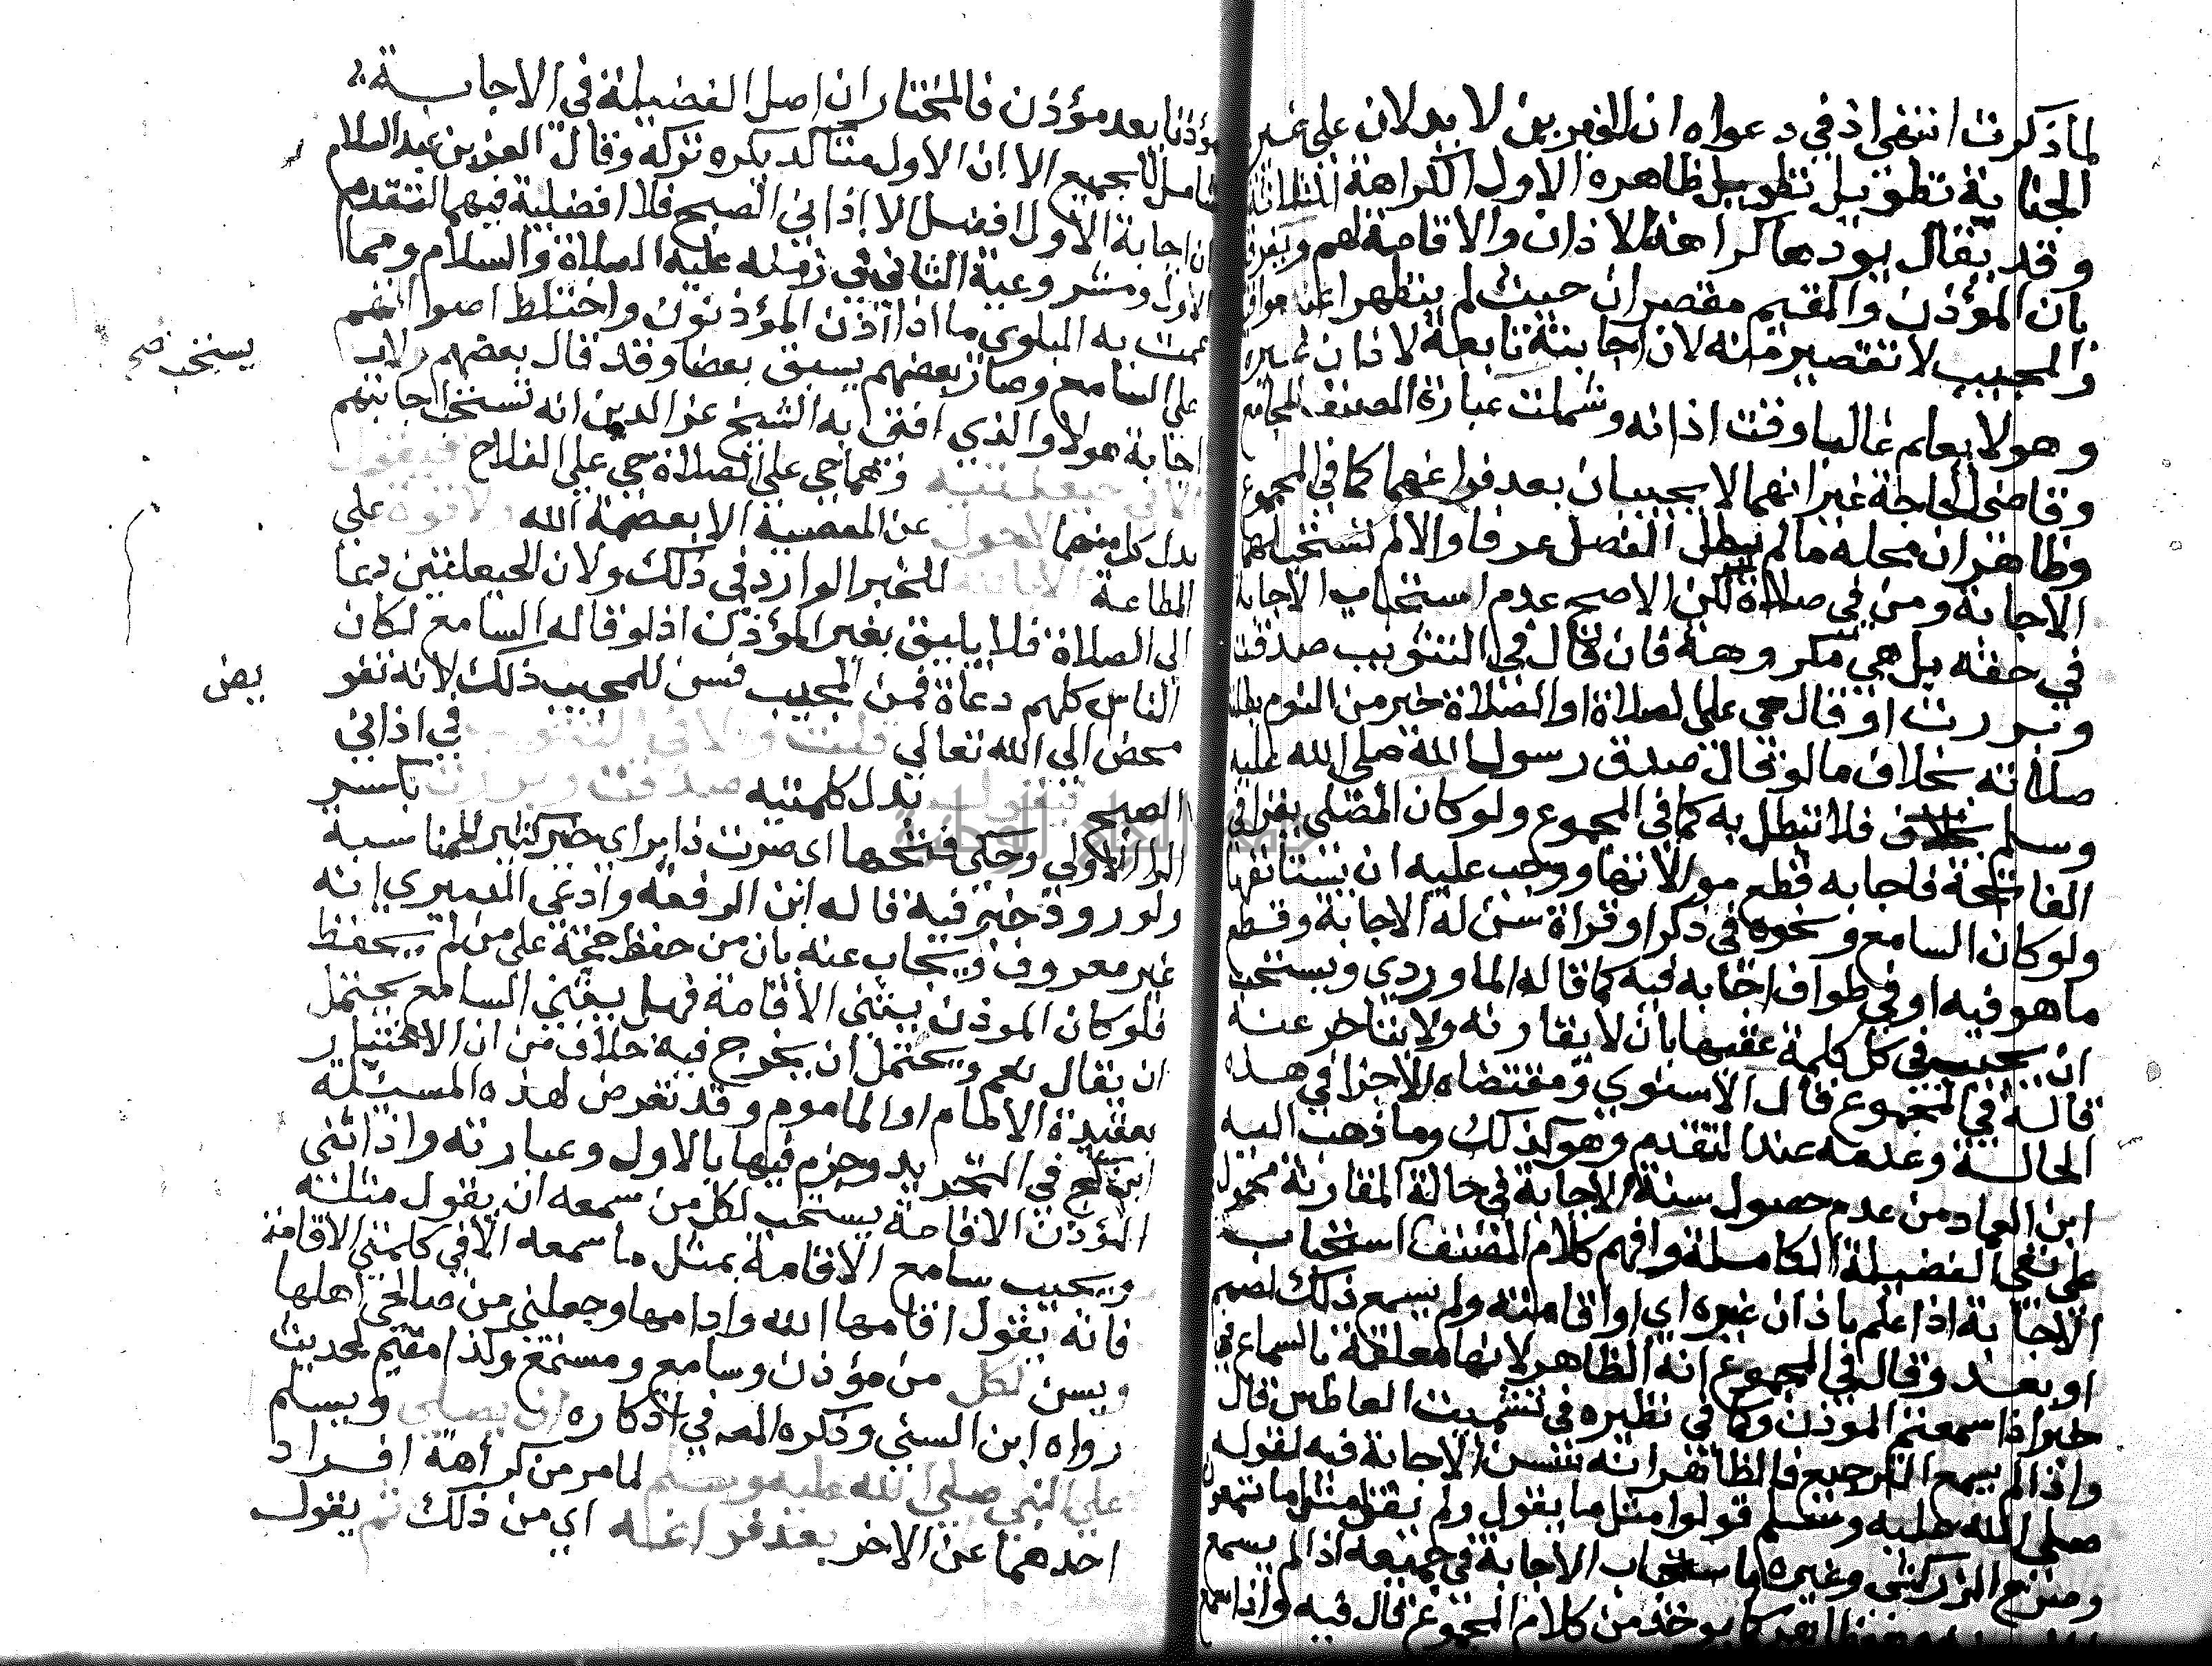 لما ذكرت انتهى اذ في دعواه ان الخبرين لا يدلان على غير
الجنابة تطويل تطويل ظاهره الاول الكراهة للثلاثة
وقد يقال بودها كراهة الاذان والاقامة لهم ويفرق
بان المؤذن والمقيم مقصران حيث لم يتطهرا عند مراقبة
والمجيب لا تقصير منه لان اجابته تابعة لاذان غيره
وهو لا يعلم غالبا وقت اذانه وشملت عبارة المصنف المجامع
وقاضي الحاجة غير انهما لا يجيبان بعد فراغهما كما في المجموع
وظاهر ان محله ما لم يطل الفصل عرفا والا لم تستحب لهما
الاجابة ومن في صلاة لكن الاصح عدم استحباب الاجابة
في حقه بل هي مكروهة فان قال في التثويب صدقت
وبررت او قال حي على الصلاة او الصلاة خير من النوم بطلت
صلاته بخلاف ما لو قال صدق رسول الله صلى الله عليه
وسلم فلا تبطل به كما في المجموع ولو كان المصلي يقرا في
الفاتحة فاجابه قطع موالاتها ووجب عليه ان يستانفها
ولو كان السامع ونحوه في ذكر او قراة سن له الاجابة وقطع
ما هو فيه او في طواف اجابه فيه كما قاله الماوردي ويستحب
ان يجيب في كل كلمة عقبها بان لا يقارنه ولا يتاخر عنه
قاله في المجموع قال الاسنوي ومقتضاه الاجزا في هذه
الحالة وعدمه عند التقدم وهو كذلك وما ذهب اليه
ابن العماد من عدم حصول سنة الاجابة في حالة المقارنة محمول
على نفي الفضيلة الكاملة وافهم كلام المصنف استحباب
الاجابة اذا علم باذان غيره اي او اقامته ولم يسمع ذلك لصمم
او بعد وقال في المجموع انه الظاهر لانها معلقة بالسماع في
خبر اذا سمعتم الموذن وكما في نظيره في تشميت العاطس قال
واذا لم يسمع الترجيع فالظاهر انه تسن الاجابة فيه لقوله
صلى الله عليه وسلم قولوا مثل ما يقول ولم يقل مثل ما تسمعون
وصرح الزركشي وغيره باستحباب الاجابة في جميعه اذا لم يسمع
كما يوخذ من كلام المجموع قال فيه واذا سمع
مؤذنا بعد مؤذن فالمختار ان اصل الفضيلة في الاجابة
شامل للجميع الا ان الاول متاكد يكره تركه وقال العز بن عبد السلام
ان اجابة الاول افضل الا اذاني الصبح فلا افضلية فيهما لتقدم
الاول ومشروعية الثاني في زمنه عليه الصلاة والسلام ومما
عمت به البلوى ما اذا اذن المؤذنون واختلط اصواتهم
على السامع وصار بعضهم يسبق بعضا وقد قال بعضهم لا
يستحب صح
اجابة هولا والذي افتى به الشيخ عز الدين انه تستحب اجابتهم
الا في حيعلتيه وهما حي على الصلاة حي على الفلاح فيقول
بدل كل منهما لا حول عن المعصية الا بعصمة الله ولا قوة على
الطاعة الا بالله للخبر الوارد في ذلك ولان الحيعلتين دعا
الى الصلاة فلا يليق بغير المؤذن اذ لو قاله السامع لكان
الناس كلهم دعاة فمن المجيب فسن للمجيب ذلك لانه تفو
يض
محض الى الله تعالى قلت والا في التثويب في اذاني
الصبح فيقول بدل كلمتيه صدقت وبررت بكسر
الرا الاولى وحكي فتحها اى صرت ذا بر اي خير كثير للمناسبة
ولورود خبر فيه قاله ابن الرفعة وادعى الدميري انه
غير معروف ويجاب عنه بان من حفظ حجة على من لم يحفظ
فلو كان الموذن يثني الاقامة فهل يثني السامع يحتمل
ان يقال نعم ويحتمل ان يخرج فيه خلاف من ان الاعتبار
بعقيدة الامام او الماموم وقد تعرض لهذه المسئلة
ابن كج في التجريد وجزم فيها بالاول وعبارته واذا ثنى
المؤذن الاقامة يستحب لكل من سمعه ان يقول مثله
ويجيب سامع الاقامة بمثل ما سمعه الا في كلمتي الاقامة
فانه يقول اقامها الله وادامها وجعلني من صالحي اهلها
ويسن لكل من مؤذن وسامع ومستمع وكذا مقيم لحديث
رواه ابن السني وذكره المصـ في اذكاره ان يصلي ويسلم
على النبي صلى الله عليه وسلم لما مر من كراهة افراد
احدهما عن الاخر بعد فراغه اي من ذلك ثم يقول